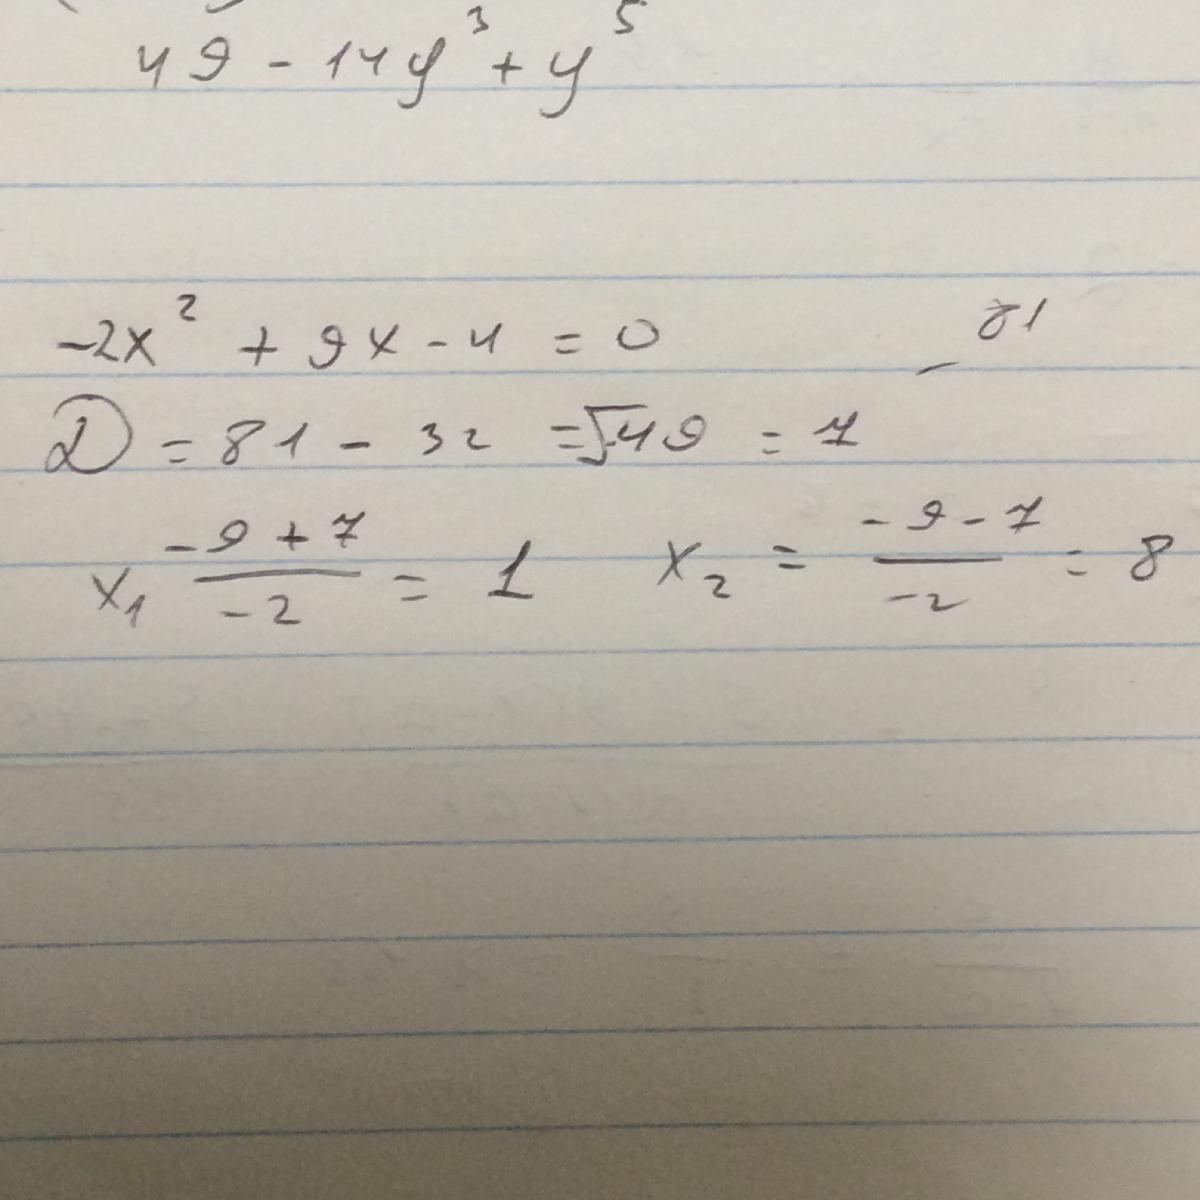 49 - 14y³ + y⁵
-2x² + 9x - 4 = 0
81
D = 81 - 32 = √49 = 7
x₁ (-9 + 7)/(-2) = 1 x₂ = (-9 - 7)/(-2) = 8